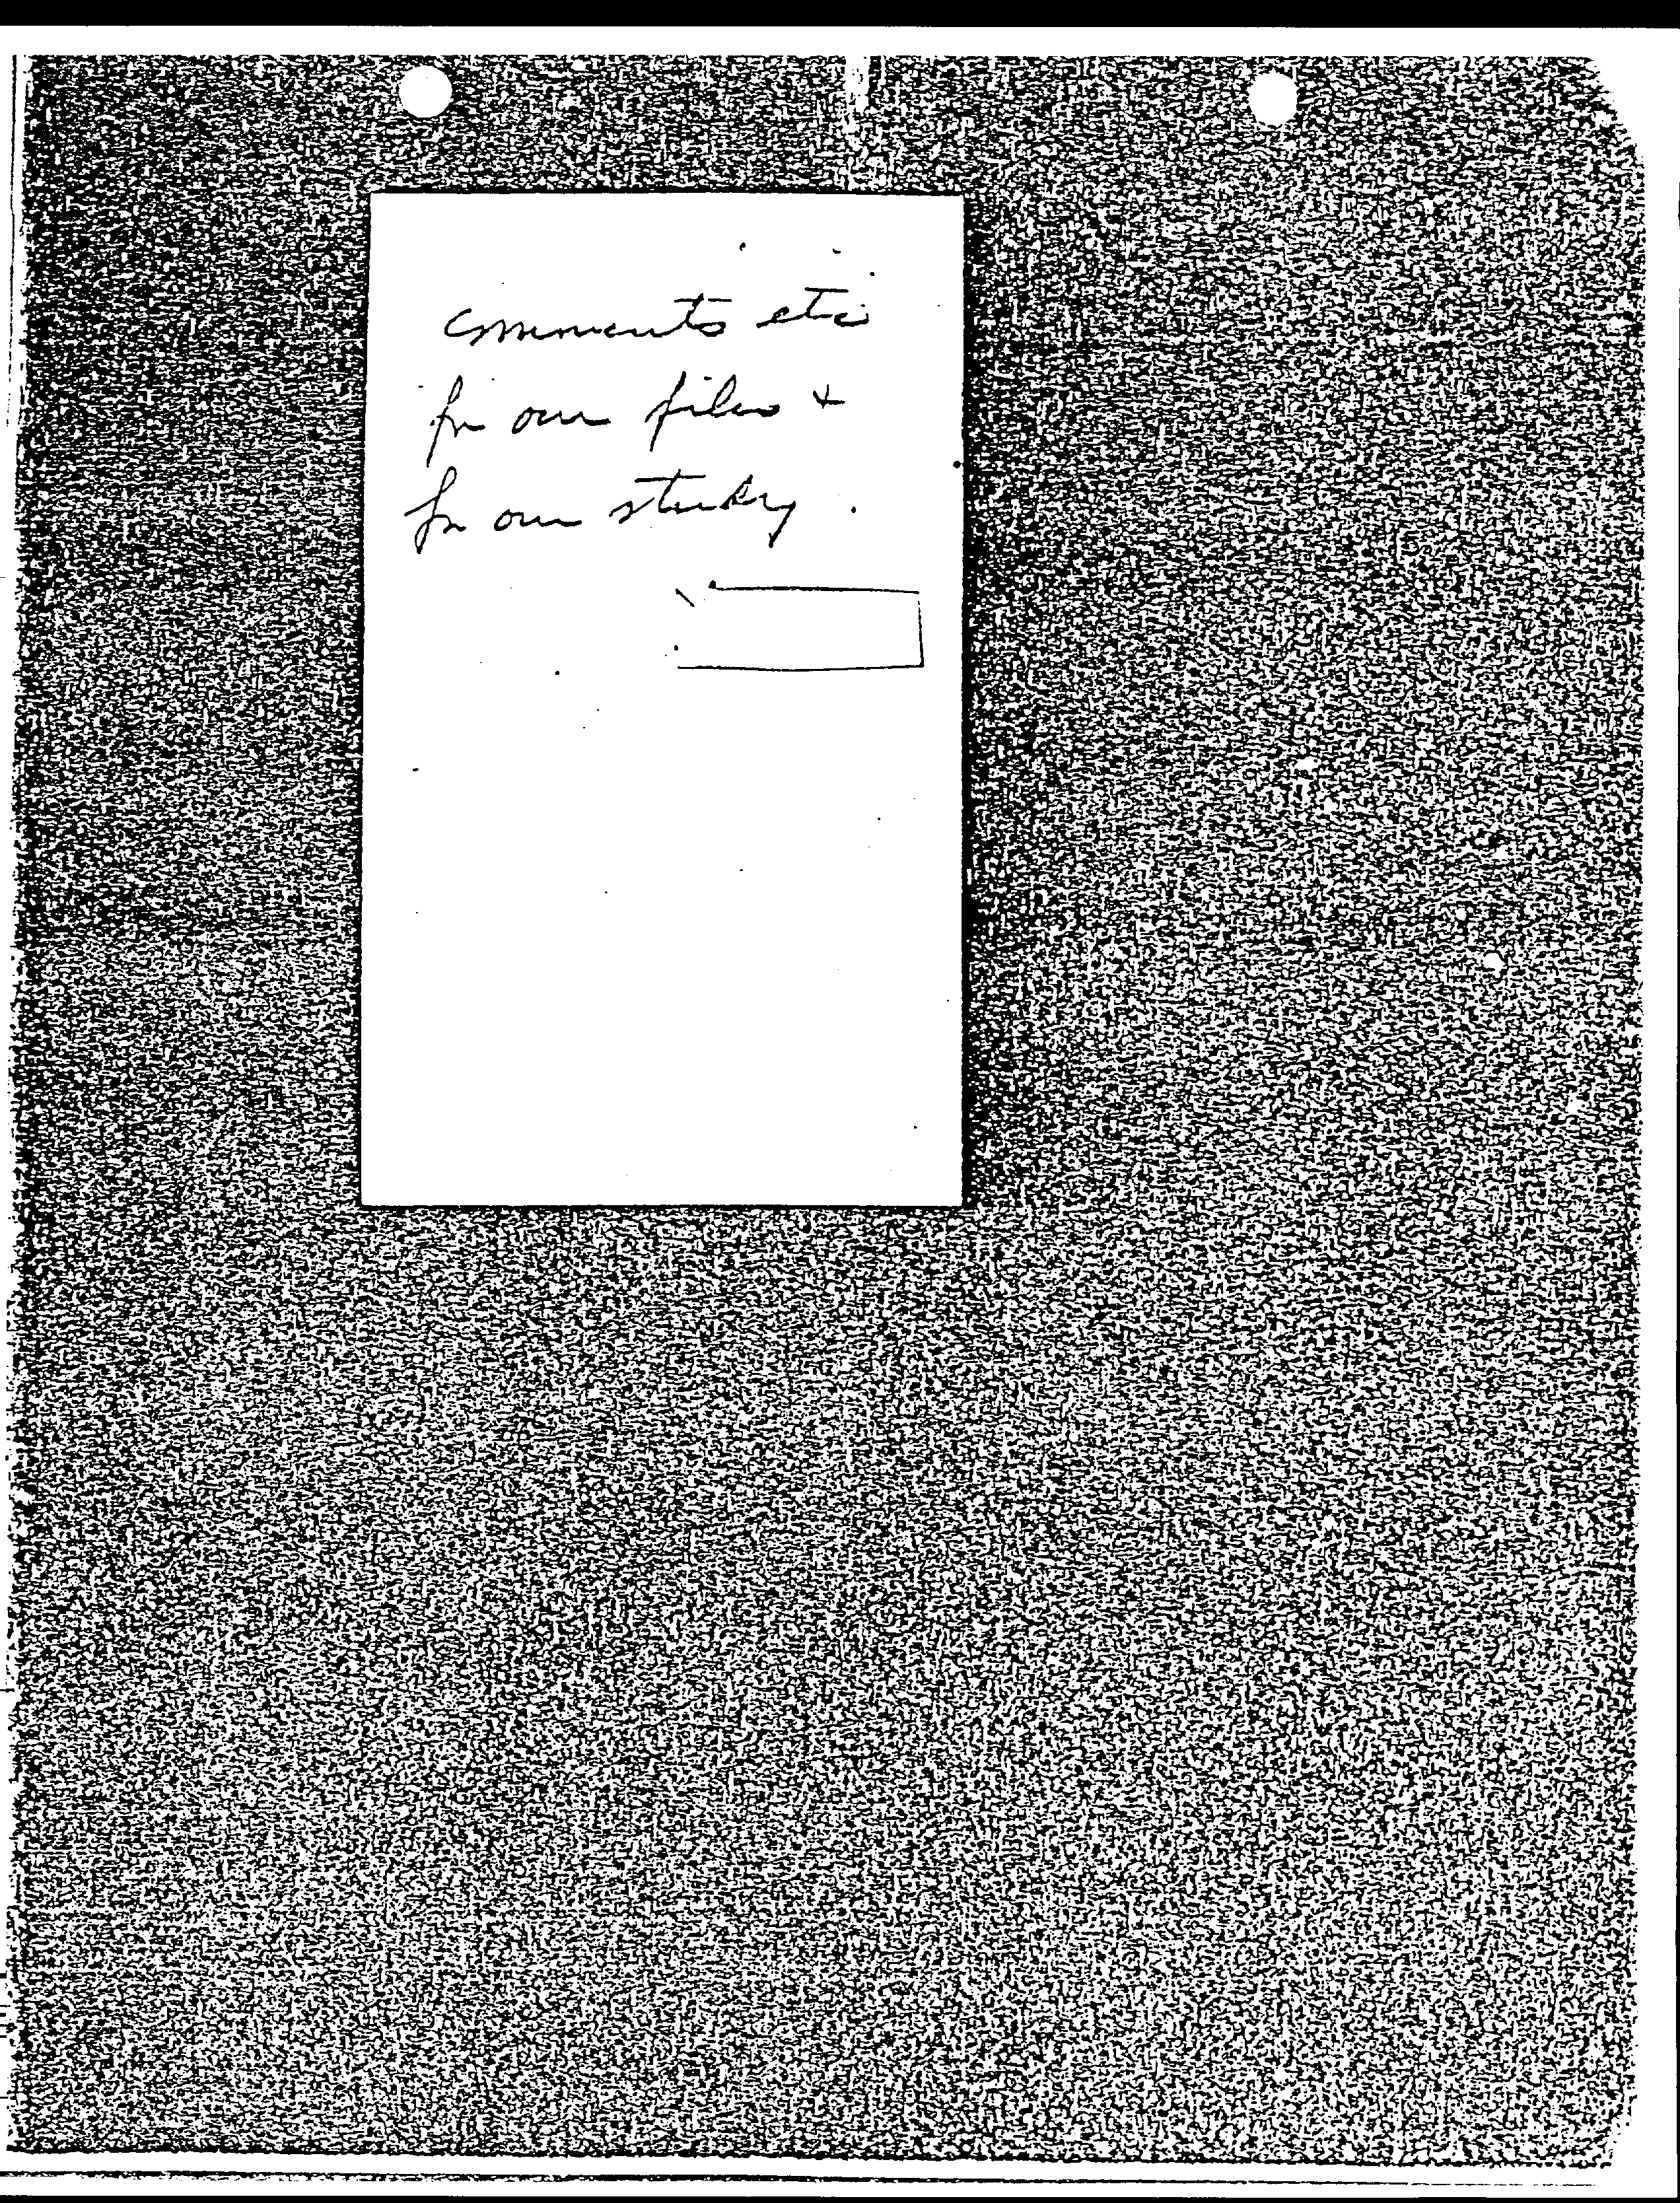 comments etc
for our files +
for our study.